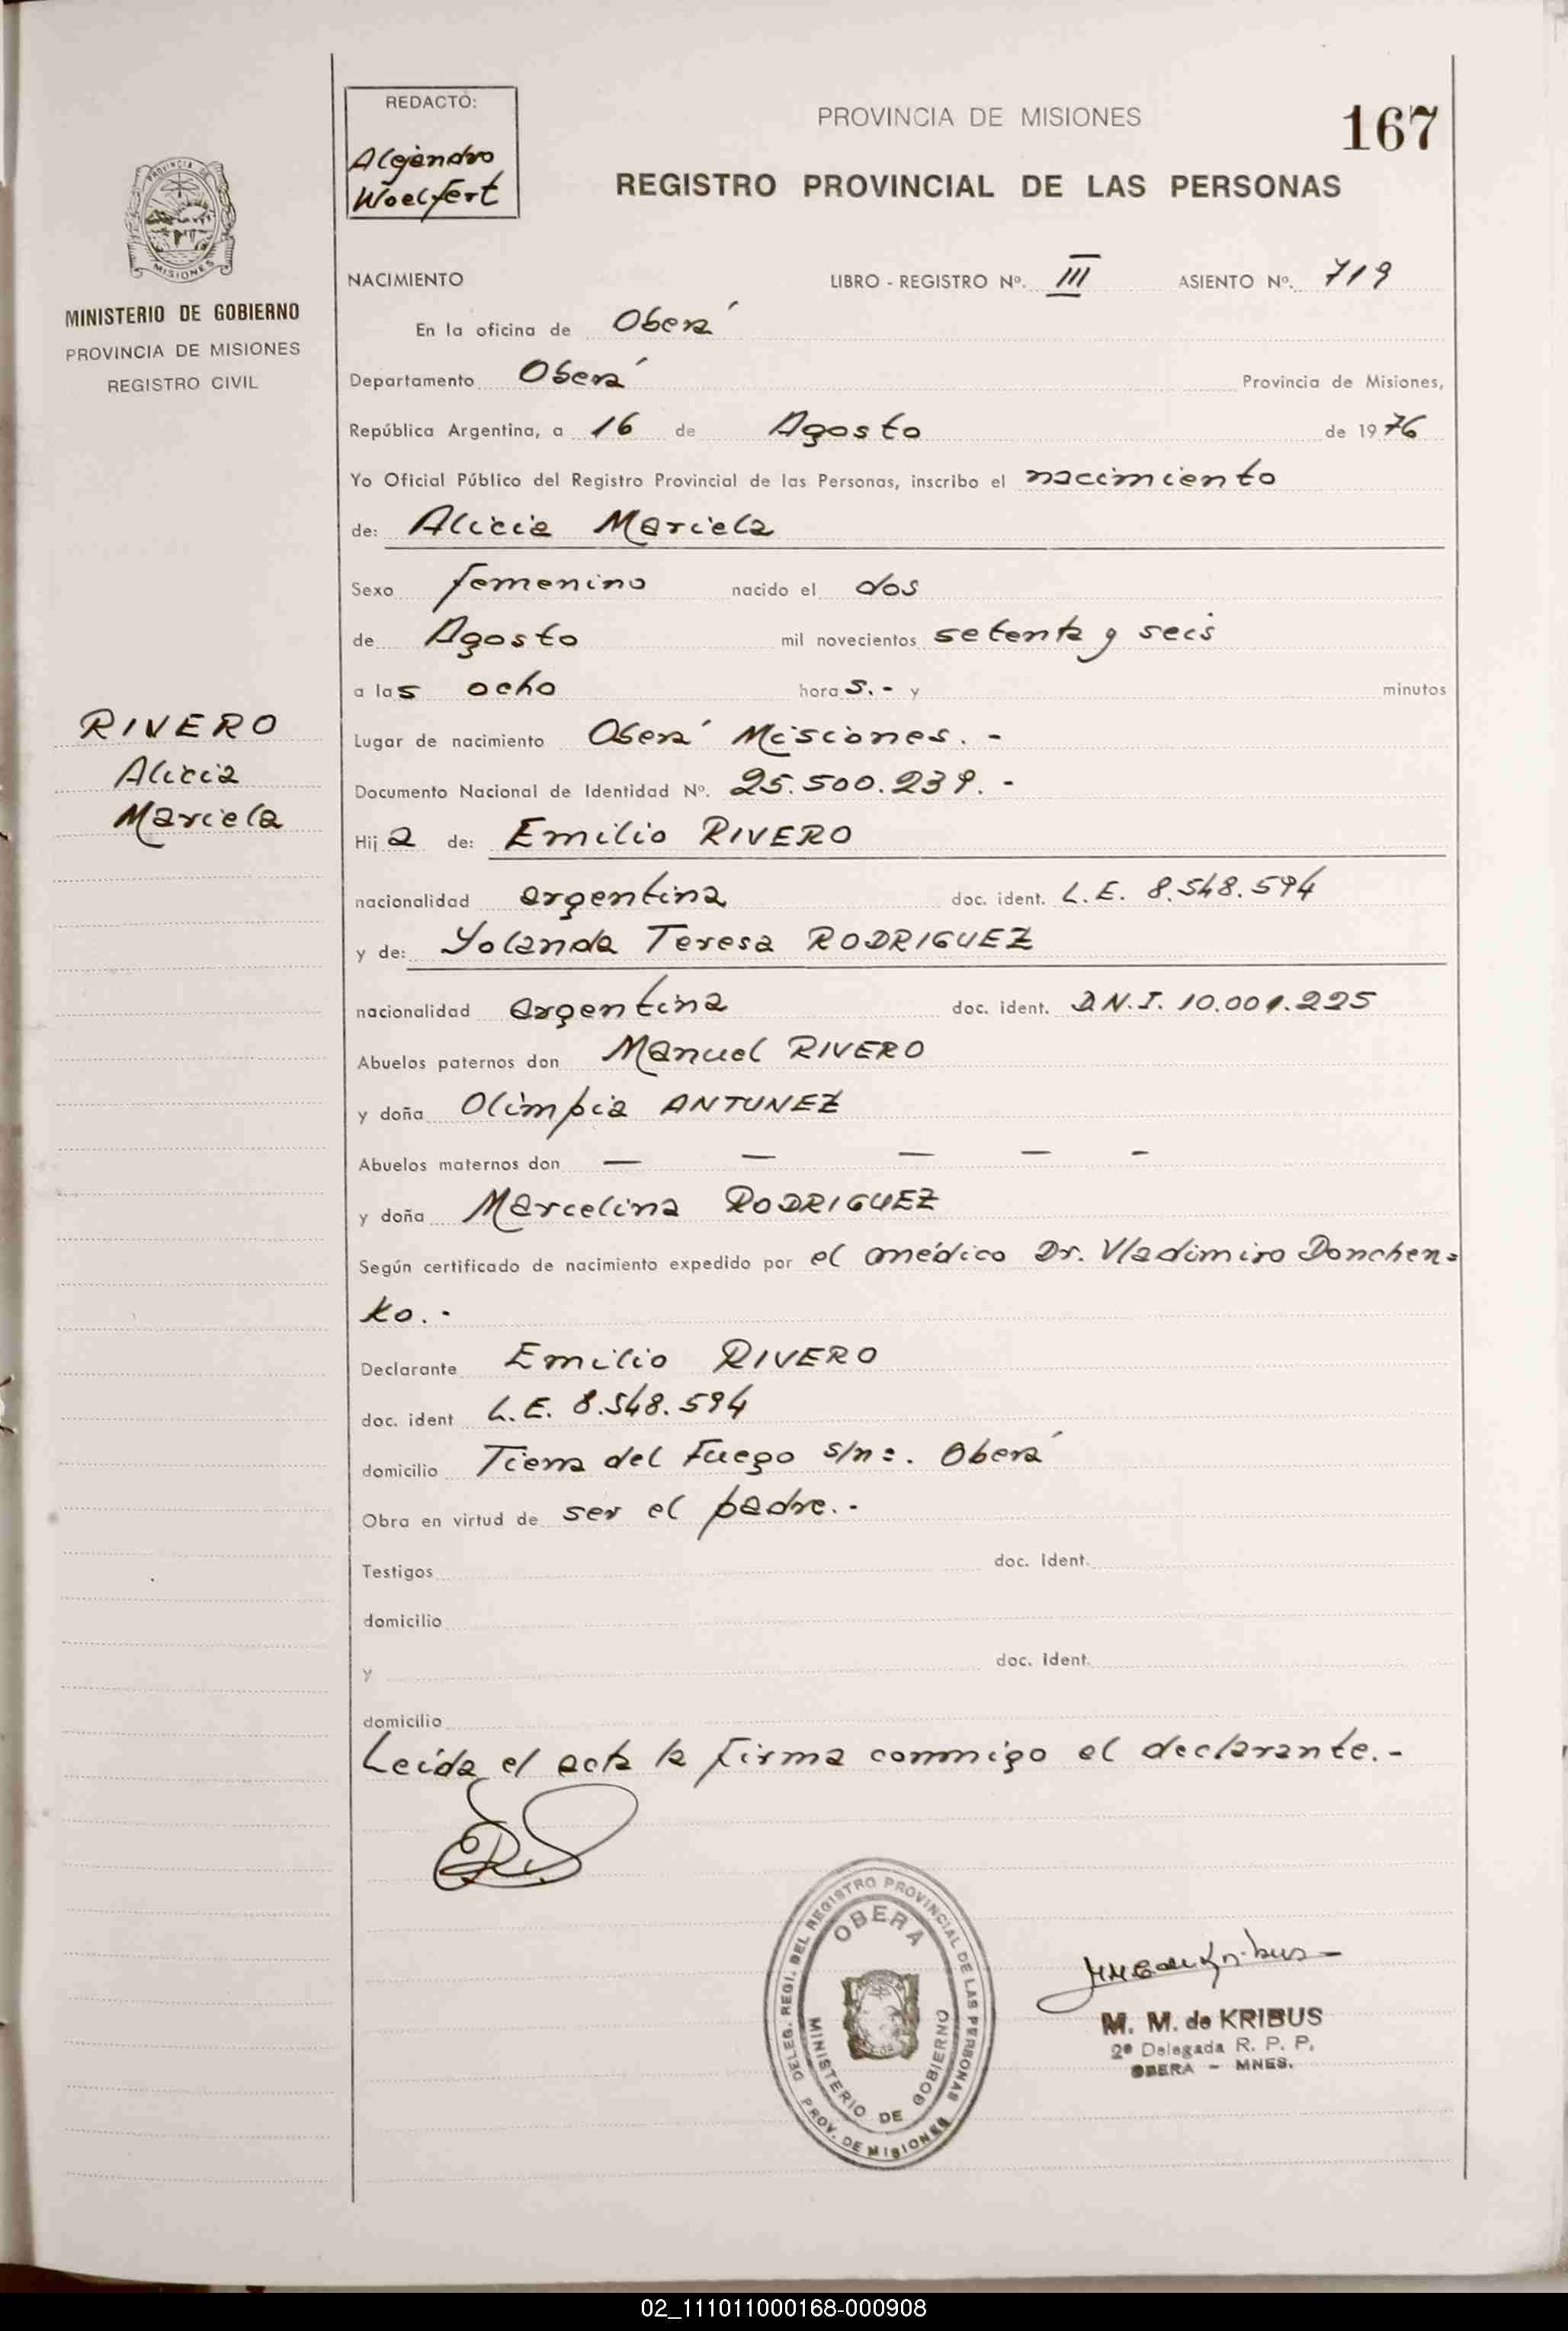 REDACTÓ:
Alejandro
Woelfert
PROVINCIA DE MISIONES
167
REGISTRO PROVINCIAL DE LAS PERSONAS
PROVINCIA DE
MISIONES
MINISTERIO DE GOBIERNO
PROVINCIA DE MISIONES
REGISTRO CIVIL
NACIMIENTO LIBRO - REGISTRO Nº. III ASIENTO Nº. 719
En la oficina de Oberá
Departamento Oberá Provincia de Misiones,
República Argentina, a 16 de Agosto de 1976
Yo Oficial Público del Registro Provincial de las Personas, inscribo el nacimiento
de: Alicia Mariela
Sexo femenino nacido el dos
de Agosto mil novecientos setenta y seis
a las ocho horas.- y minutos
RIVERO
Alicia
Mariela
Lugar de nacimiento Oberá Misiones.-
Documento Nacional de Identidad Nº. 25.500.239.-
Hija de: Emilio RIVERO
nacionalidad argentina doc. ident. L.E. 8.548.594
y de: Yolanda Teresa RODRIGUEZ
nacionalidad argentina doc. ident. D.N.I. 10.001.225
Abuelos paternos don Manuel RIVERO
y doña Olimpia ANTUNEZ
Abuelos maternos don — — — — -
y doña Marcelina RODRIGUEZ
Según certificado de nacimiento expedido por el médico Dr. Vladimiro Donchen=
ko.-
Declarante Emilio RIVERO
doc. ident L.E. 8.548.594
domicilio Tierra del Fuego s/n=. Oberá
Obra en virtud de ser el padre.-
Testigos doc. Ident.
domicilio
y doc. Ident.
domicilio
Leída el acta la firma conmigo el declarante.-
DELEG. REGI. DEL REGISTRO PROVINCIAL DE LAS PERSONAS
OBERA
MINISTERIO DE GOBIERNO
PROV. DE MISIONES
M. M. de KRIBUS
2ª Delegada R. P. P.
OBERA - MNES.
02_111011000168-000908